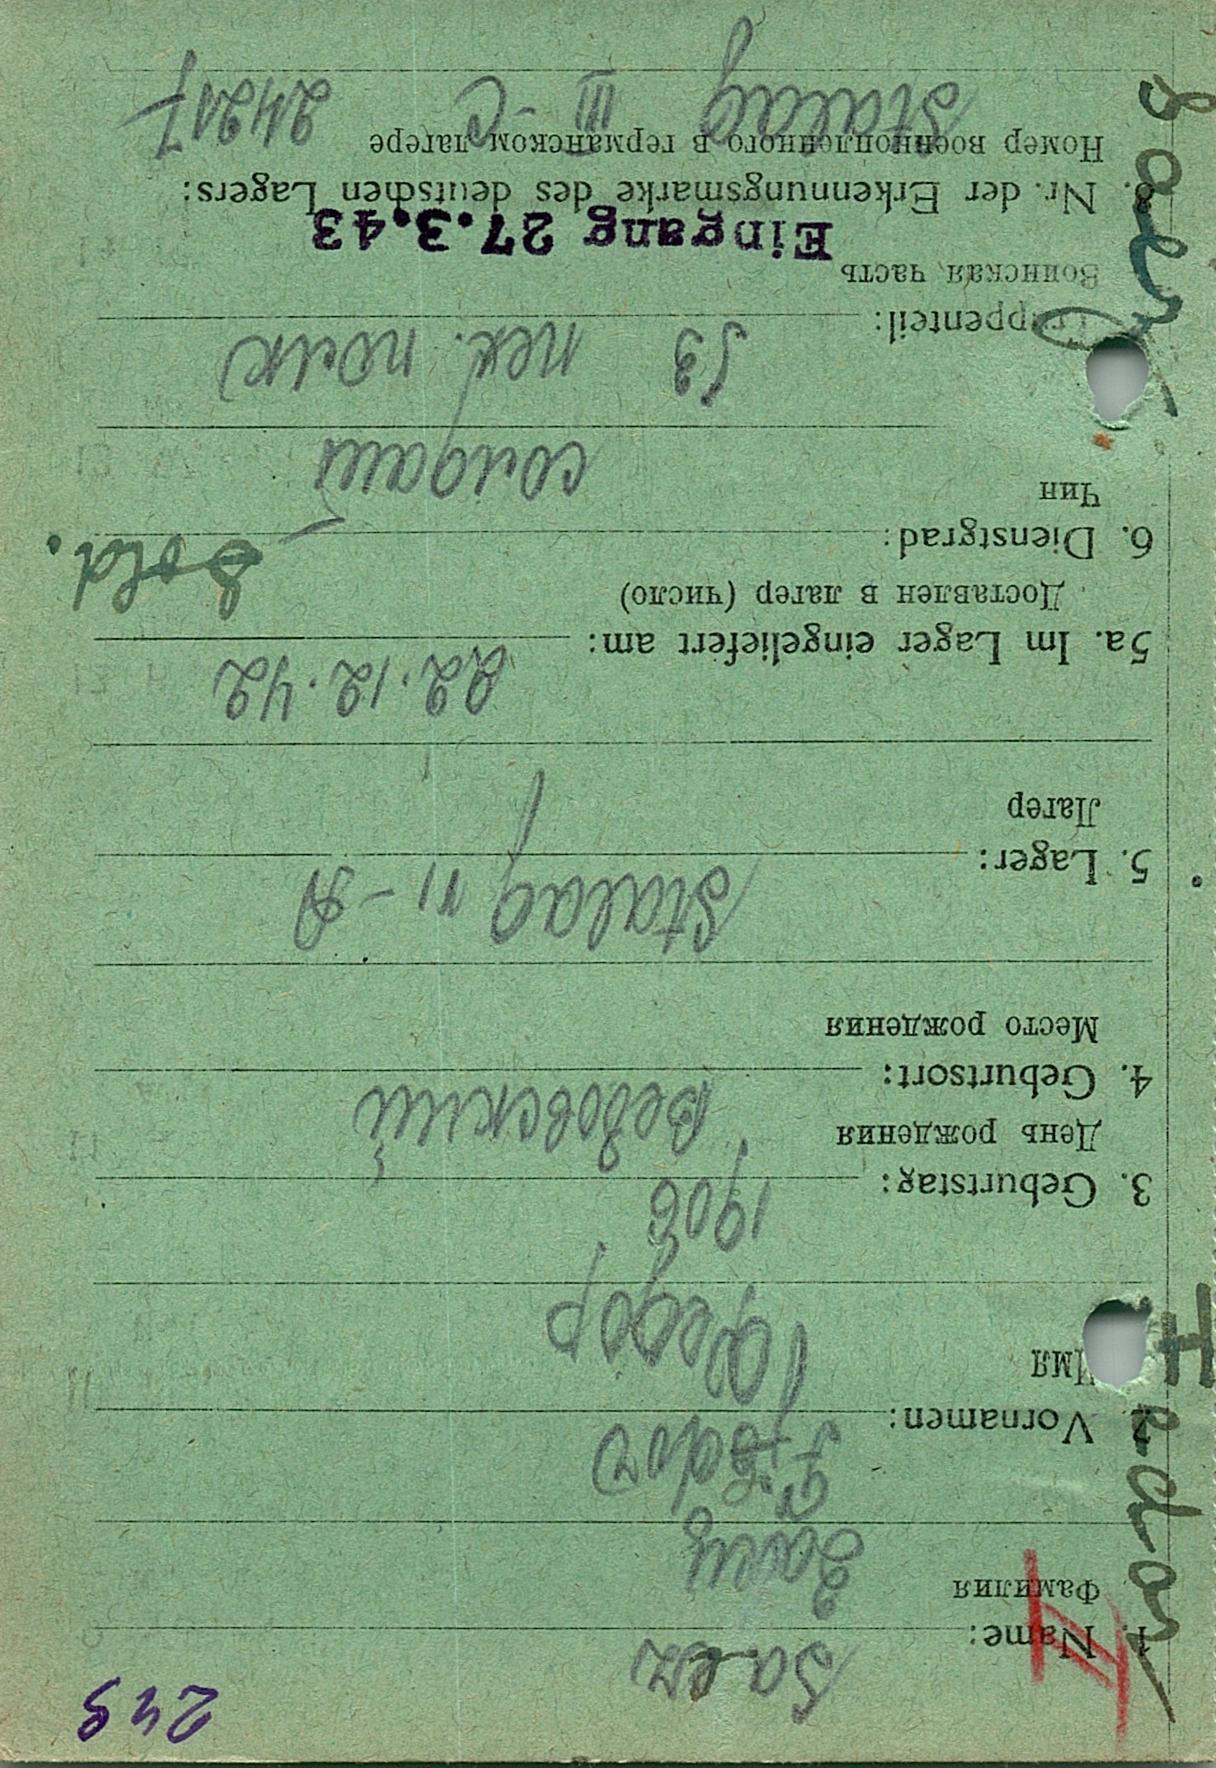 249
1. Name: Saez
Фамилия Заец
2. Vornamen: Fedor
Имя Федор
3. Geburtstag: 1906
День рождения
4. Geburtsort:
Место рождения
5. Lager: Stalag VI-A
Лагер
5a. Im Lager eingeliefert am: 22.12.42
Доставлен в лагер (число)
6. Dienstgrad: Sold.
Чин солдат
Truppenteil: 53 пех. полк
Воинская часть
Eingang 27.3.43
8. Nr. der Erkennungsmarke des deutschen Lagers:
Номер военнопленного в германском лагере
Stalag III-C 24217
Fedor